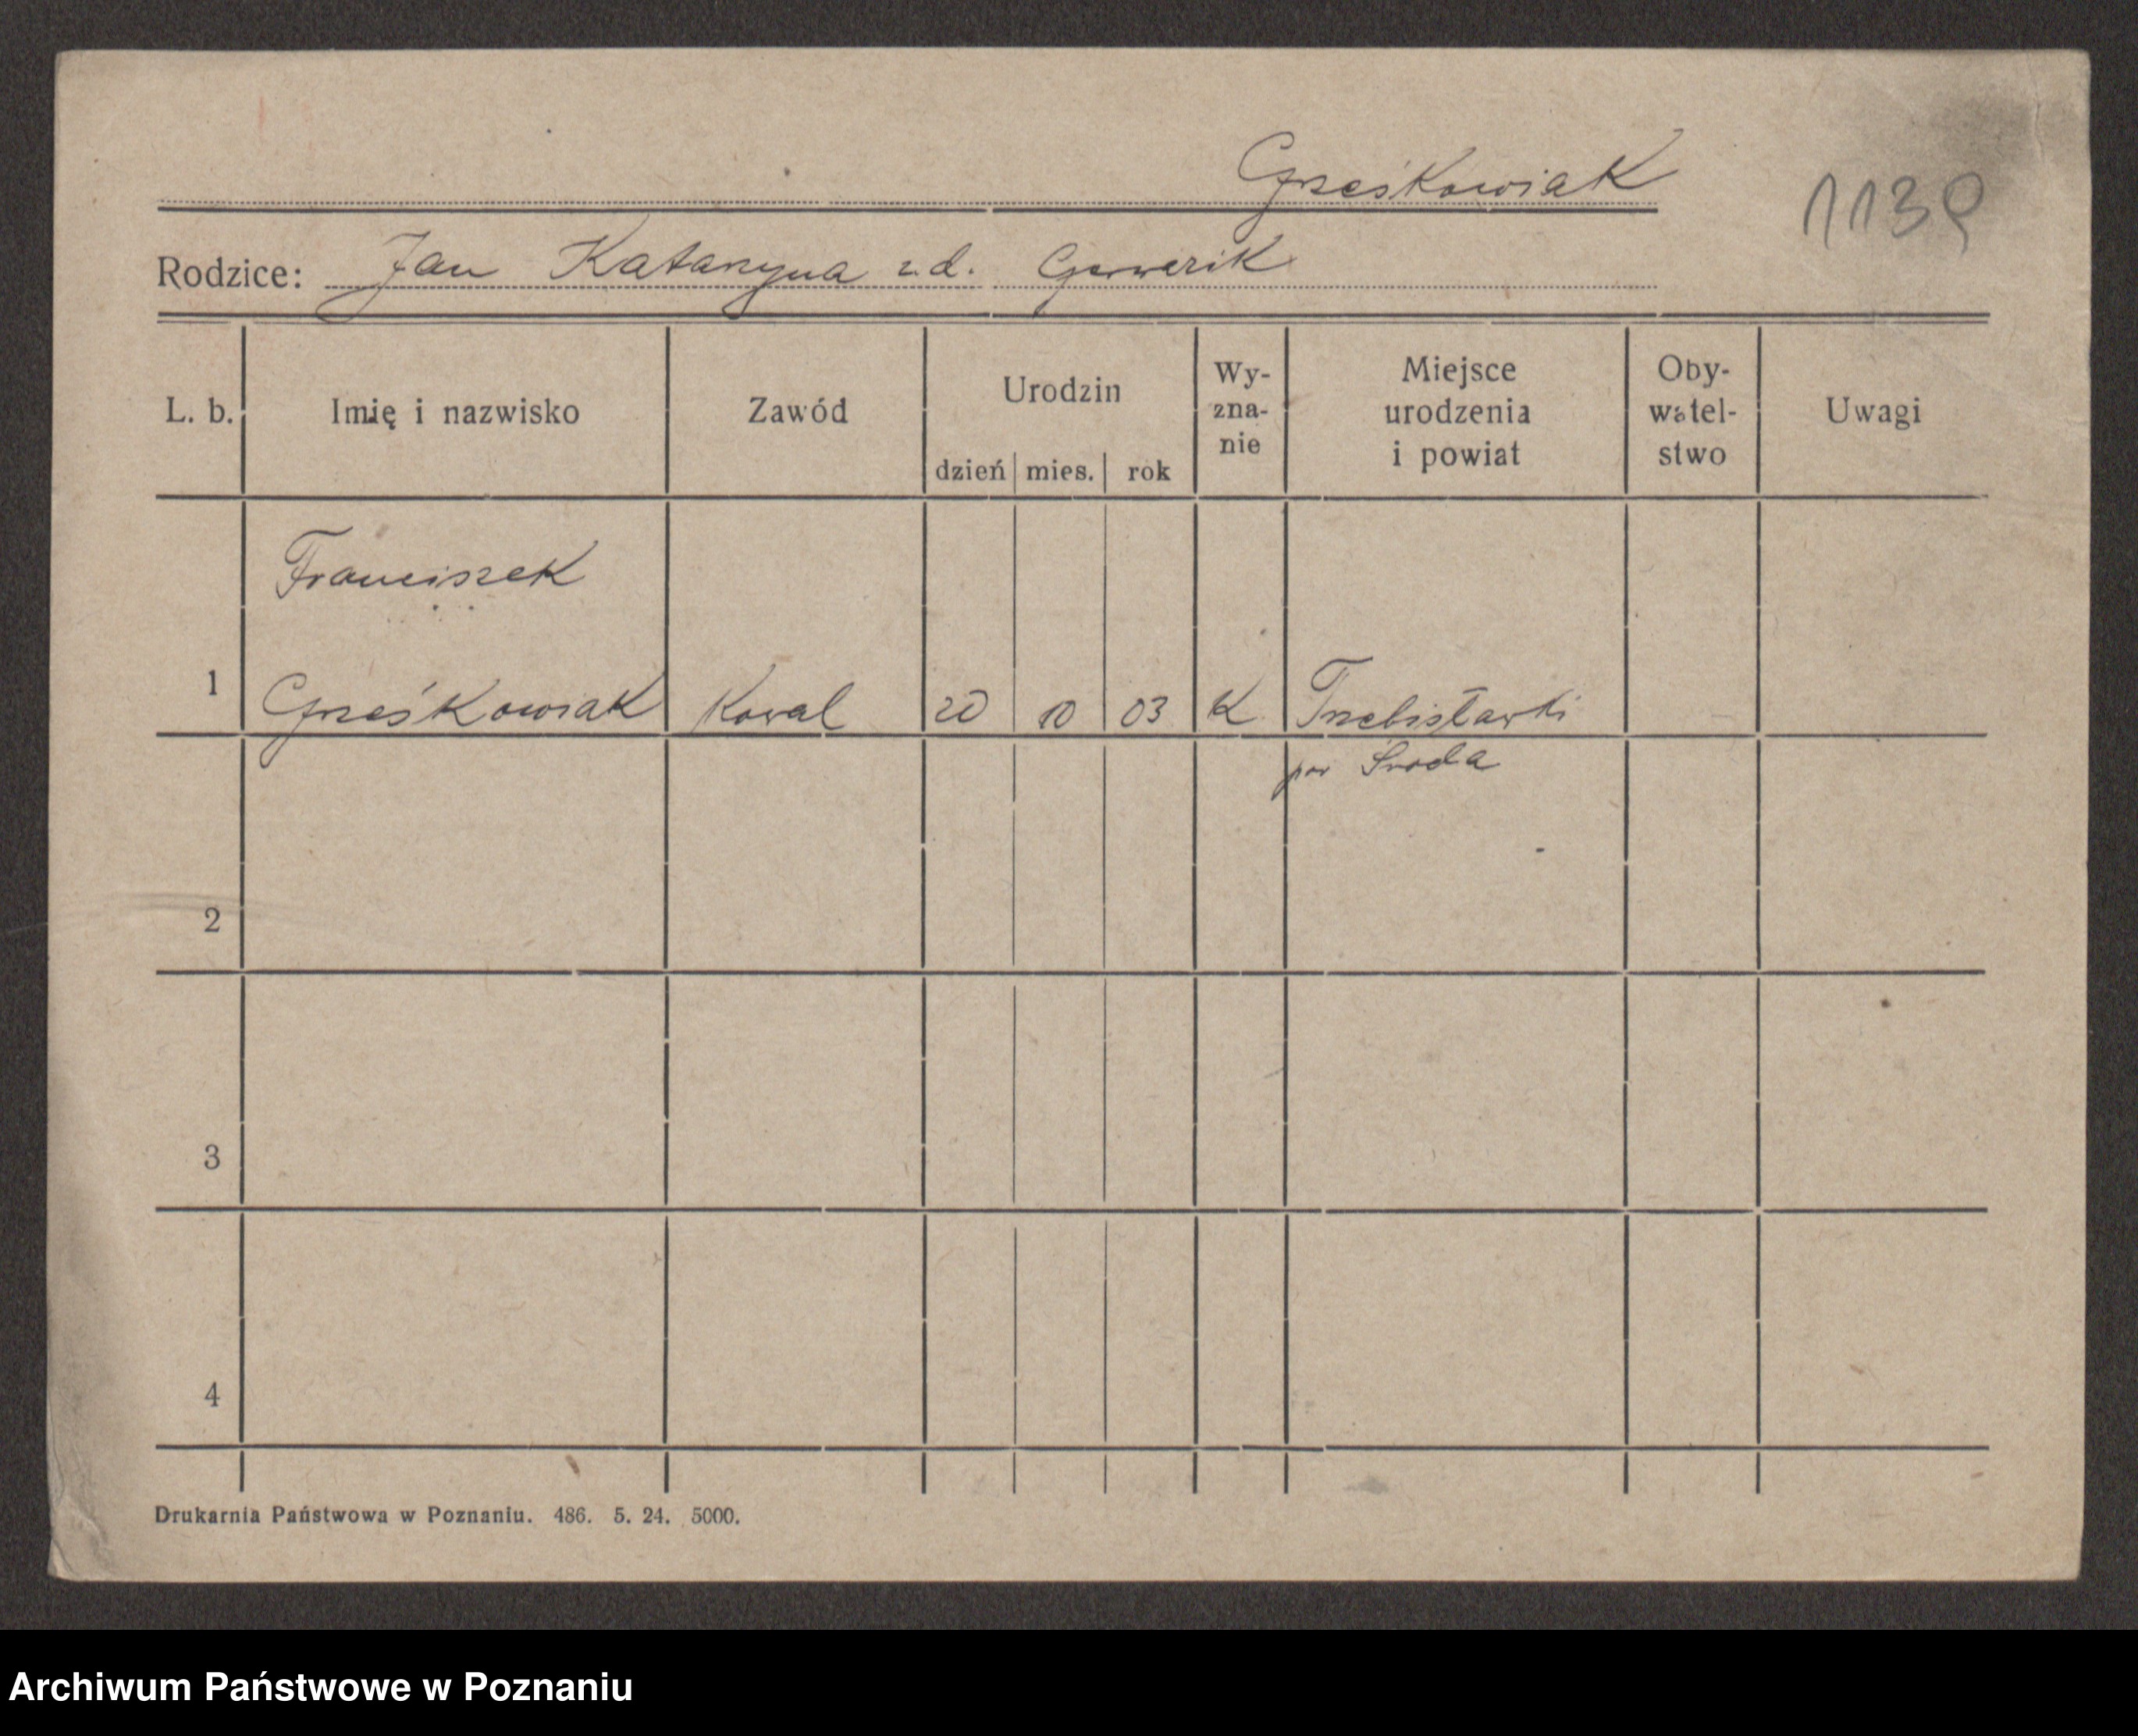 Grześkowiak
1139
Rodzice: Jan Katarzyna z.d.
L. b. Imię i nazwisko Zawód Urodzin dzień mies. rok Wy-zna-nie Miejsce urodzenia i powiat Oby-watel-stwo Uwagi
Franciszek
1 Grześkowiak Kowal 20 10 03 K Trzebisławki
pow Środa
2
3
4
Drukarnia Państwowa w Poznaniu. 486. 5. 24. 5000.
Archiwum Państwowe w Poznaniu